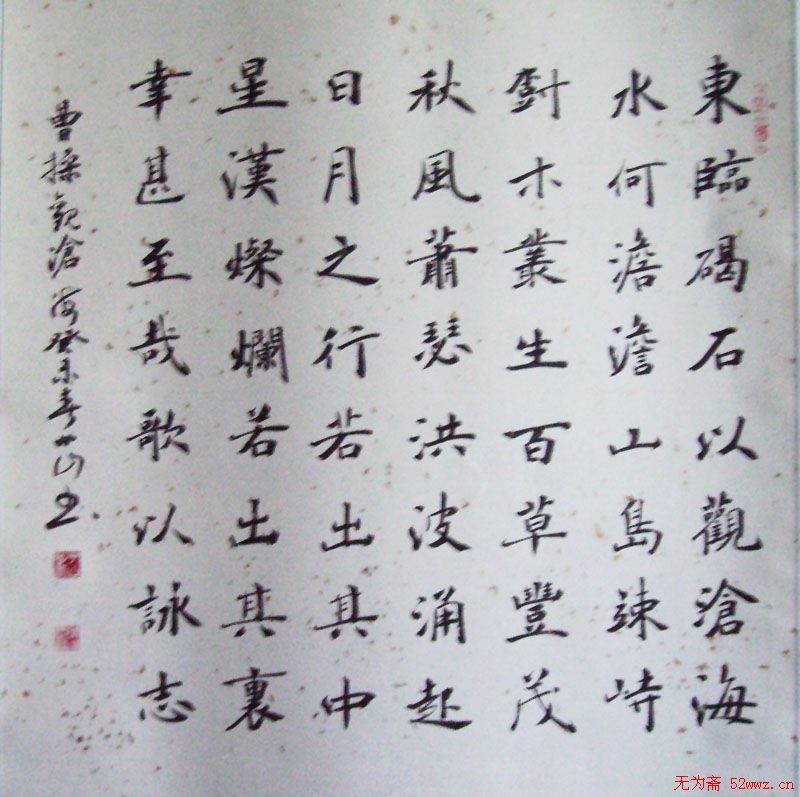 東臨碣石以觀滄海
水何澹澹山島竦峙
樹木叢生百草豐茂
秋風蕭瑟洪波涌起
日月之行若出其中
星漢燦爛若出其裏
幸甚至哉歌以詠志
曹操觀滄海癸未春山书
无为斋 52wwz.cn